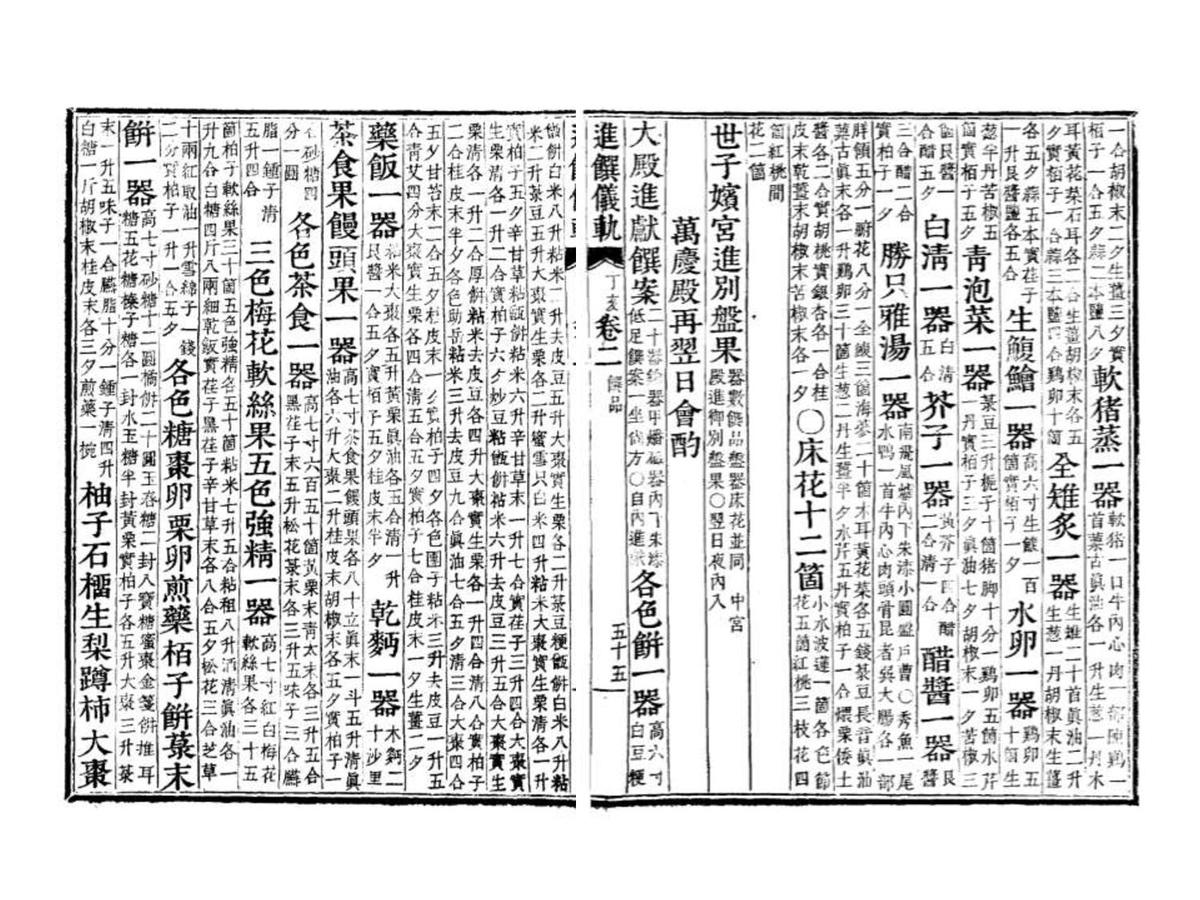 一合胡椒末二夕生薑三夕實栢子一合五夕蒜二本鹽八夕軟猪蒸一器軟猪一口牛內心肉一部陳鷄一首蔈古眞油各一升生葱一丹木
耳黃花菜石耳各二合生薑胡椒末各五夕實栢子一合蒜三本鹽四合鷄卵十箇全雉炙一器生雉二十首眞油二升生葱一丹胡椒末生薑
各五夕蒜五本實荏子一升艮醬鹽各五合生鰒鱠一器高六寸生鰒一百箇實栢子一夕水卵一器鷄卵五十箇生
葱半丹苦椒五箇實栢子五夕靑泡菜一器菉豆三升梔子十箇猪脚十分一鷄卵五箇水芹一丹實栢子三夕眞油七夕胡椒末一夕苦椒三
箇艮醬一合醋五夕白淸一器白淸五合芥子一器黃芥子四合醋二合淸一合醋醬一器艮醬
三合醋二合實栢子一夕勝只雅湯一器南飛鳳甆內下朱漆小圓盤戶曹○秀魚一尾水鴨一首牛內心肉頭骨昆者巽大腸各一部
胖領五分一腑花八分一全鰒三箇海蔘二十箇木耳黃花菜各五錢菉豆長音眞油蔈古眞末各一升鷄卵三十箇生葱二丹生薑半夕水芹五丹實栢子一合煨栗倭土
醬各二合實胡桃實銀杏各一合桂皮末乾薑末胡椒末苦椒末各一夕○床花十二箇小水波蓮一箇各色節花五箇紅桃三枝花四
箇紅桃間花二箇
世子嬪宮進別盤果器數饌品盤器床花並同 中宮殿進御別盤果○翌日夜內入
萬慶殿再翌日會酌
大殿進獻饌案二十器鍮器甲燔磁器內下朱漆低足饌案一坐尙方○自內進排各色餠一器高六寸白豆粳
進饌儀軌 丁亥 卷二 饌品 五十五
米二升菉豆五升大棗實生栗各二升蜜雪只白米四升粘米大棗實生栗淸各一升
實栢子五夕辛甘草粘甑餠粘米六升辛甘草末一升實荏子三升四合大棗實
生栗淸各一升二合實栢子六夕炒豆粘甑餠粘米六升去皮豆三升五合大棗實生
栗淸各一升二合厚餠粘米去皮豆各四升大棗實生栗各一升四合淸六合實栢子
二合桂皮末半夕各色助岳粘米三升去皮豆九合眞油七合五夕淸三合大棗四合
五夕甘苔末二合五夕桂皮末一夕實栢子四夕各色團子粘米三升去皮豆一升五
合靑艾四分大棗實生栗各四合淸六合實栢子七合桂皮末一夕生薑二夕
藥飯一器粘米大棗各五升黃栗眞油各五合淸一升艮醬一合五夕實栢子五夕桂皮末半夕乾麪一器木麪二十沙里
茶食果饅頭果一器高七寸茶食果饅頭果各八十立眞末一斗五升淸眞油各六升大棗二升桂皮末胡椒末各五夕實栢子一
合砂糖四分一圓各色茶食一器高七寸六百五十箇黃栗末靑太末各三升五合黑荏子末五升松花菉末各三升五味子三合臙
脂一鍾子淸五升四合三色梅花軟絲果五色強精一器高七寸紅白梅花軟絲果各三十五
箇栢子軟絲果三十箇五色強精各五十箇粘米七升五合粘租八升酒淸眞油各一升九合白糖四斤八兩細乾飯實荏子黑荏子辛甘草末各八合五夕松花三合芝草
十兩紅取油一升雪綿子一錢二分實栢子一升一合五夕各色糖棗卵栗卵煎藥栢子餠菉末
餠一器高七寸砂糖十二圓橘餠二十圓玉春糖二封八寶糖蜜棗金箋餠推耳糖五花糖榛子糖各一封水玉糖半封黃栗實栢子各五升大棗三升菉
末一升五味子一合臙脂十分一鍾子淸四升白糖一斤胡椒末桂皮末各三夕煎藥一椀柚子石榴生梨蹲柿大棗